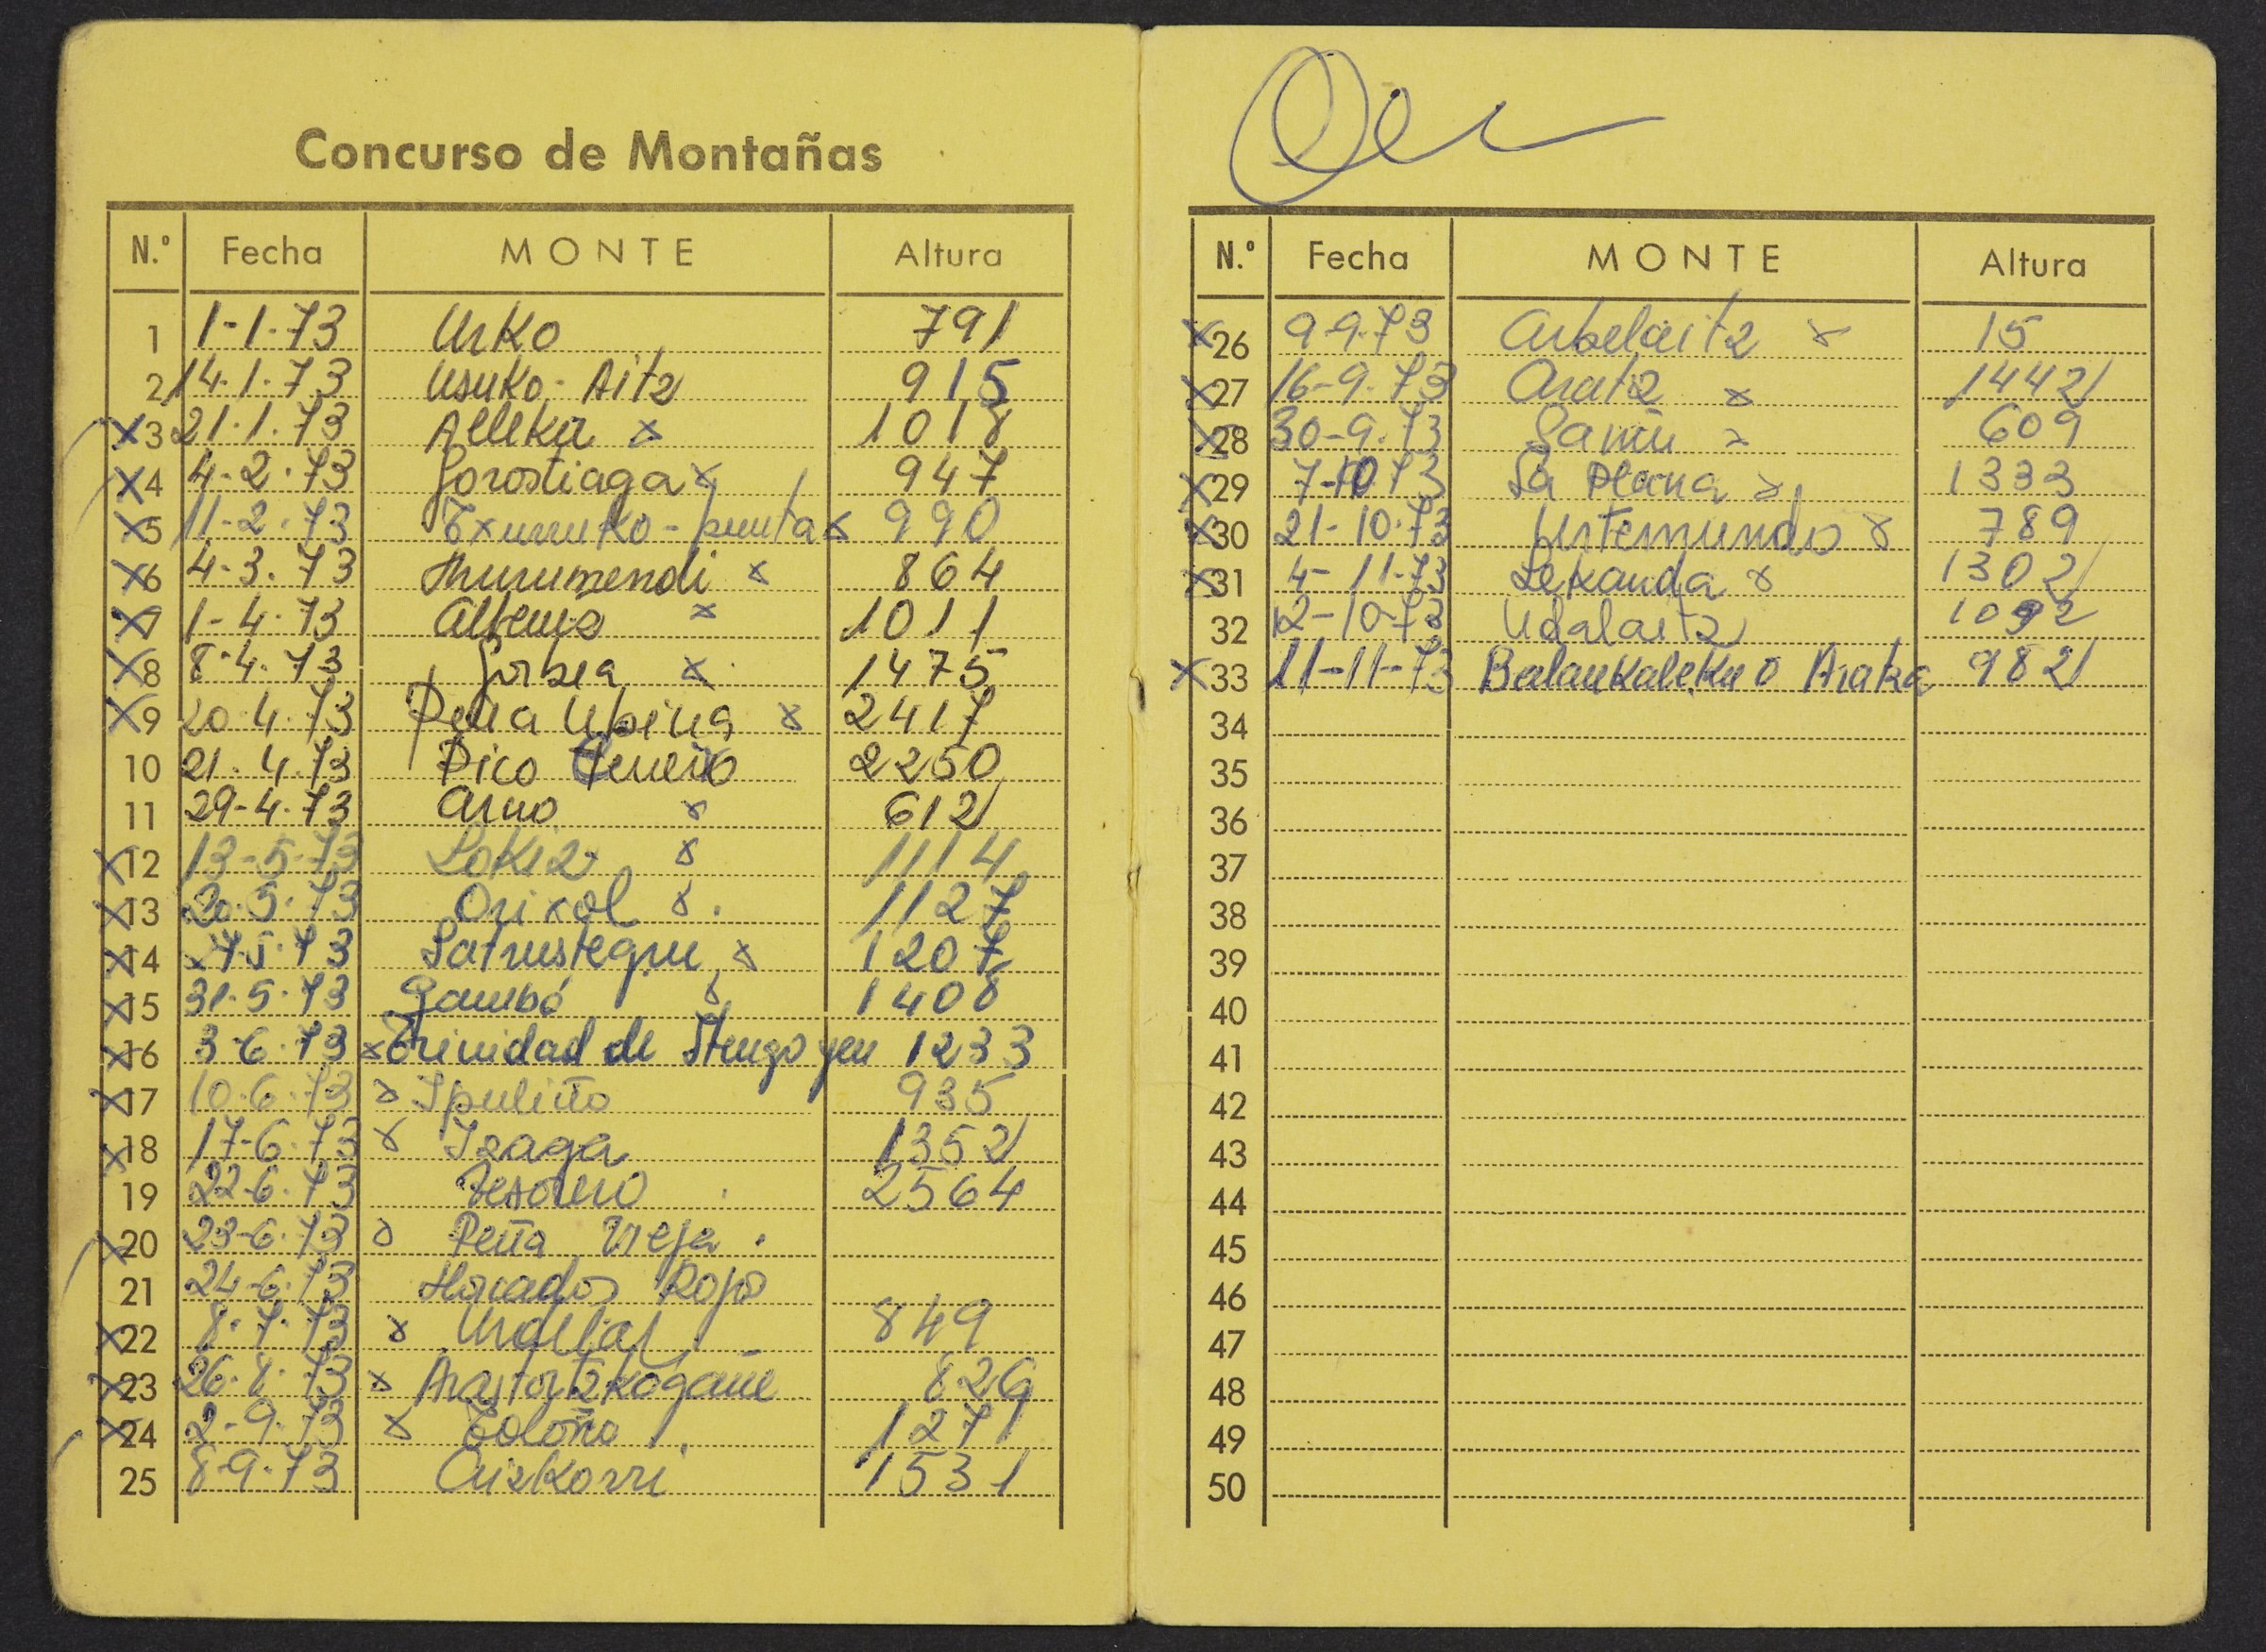 Concurso de Montañas
N.º Fecha MONTE Altura
1 1-1-73 Urko 791
2 14-1-73 Usuko-Aitz 915
x 3 21-1-73 Alleku x 1018
x 4 4-2-73 Gorostiaga x 947
x 5 11-2-73 Txurruko-punta x 990
x 6 4-3-73 Murumendi x 864
x 7 1-4-73 x 1011
x 8 8-4-73 Gorbea x 1475
x 9 20-4-73 Peña Ubiña x 2417
10 21-4-73 Pico 2250
11 29-4-73 Arno x 612
x 12 13-5-73 Lokiz x 1114
x 13 20-5-73 Orixol x 1127
x 14 73 Satrustegui x 1207
x 15 31-5-73 Gambó x 1408
x 16 3-6-73 x Trinidad de Iturgoyen 1233
x 17 10-6-73 x Ipuliño 935
x 18 17-6-73 x Izaga 1352
19 22-6-73 Tesorero 2564
x 20 23-6-73 x Peña Vieja
21 24-6-73 Horcados Rojo
x 22 8-7-73 x Urdelar 849
x 23 26-8-73 x Arastortzkogañe 829
x 24 2-9-73 x Toloño 1271
25 8-9-73 Aizkorri 1531
N.º Fecha MONTE Altura
x 26 9-9-73 Arbelaitz x 15
x 27 16-9-73 Aratz x 1442
x 28 30-9-73 x 609
x 29 7-10-73 La Plana x 1333
x 30 21-10-73 Urtemundo x 789
x 31 4-11-73 Lekanda x 1302
32 12-10-73 Udalaitz 1092
x 33 11-11-73 Balankaleku o Araka 982
34
35
36
37
38
39
40
41
42
43
44
45
46
47
48
49
50